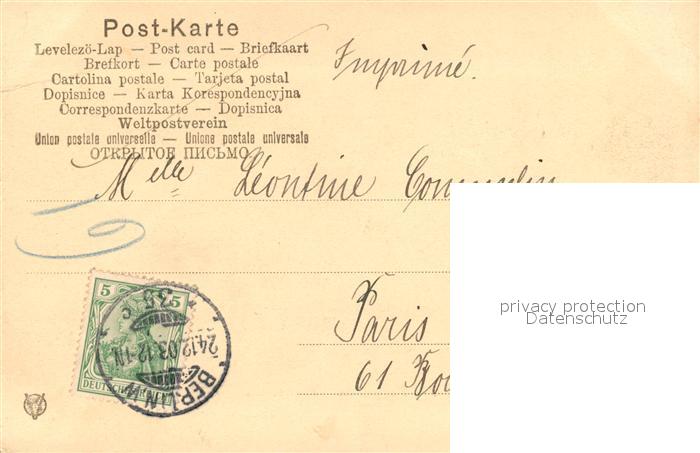 Post-Karte
Levelezö-Lap — Post card — Briefkaart
Brefkort — Carte postale
Cartolina postale — Tarjeta postal
Dopisnice — Karta Korespondencyjna
Correspondenzkarte — Dopisnica
Weltpostverein
Union postale universelle — Unione postale universale
ОТКРЫТОЕ ПИСЬМО
Imprimé.
Melle Léontine
Paris
61
5 5
DEUTSCHES REICH
BERLIN.W.
24.12.03.12-1N.
* 35 c *
privacy protection
Datenschutz